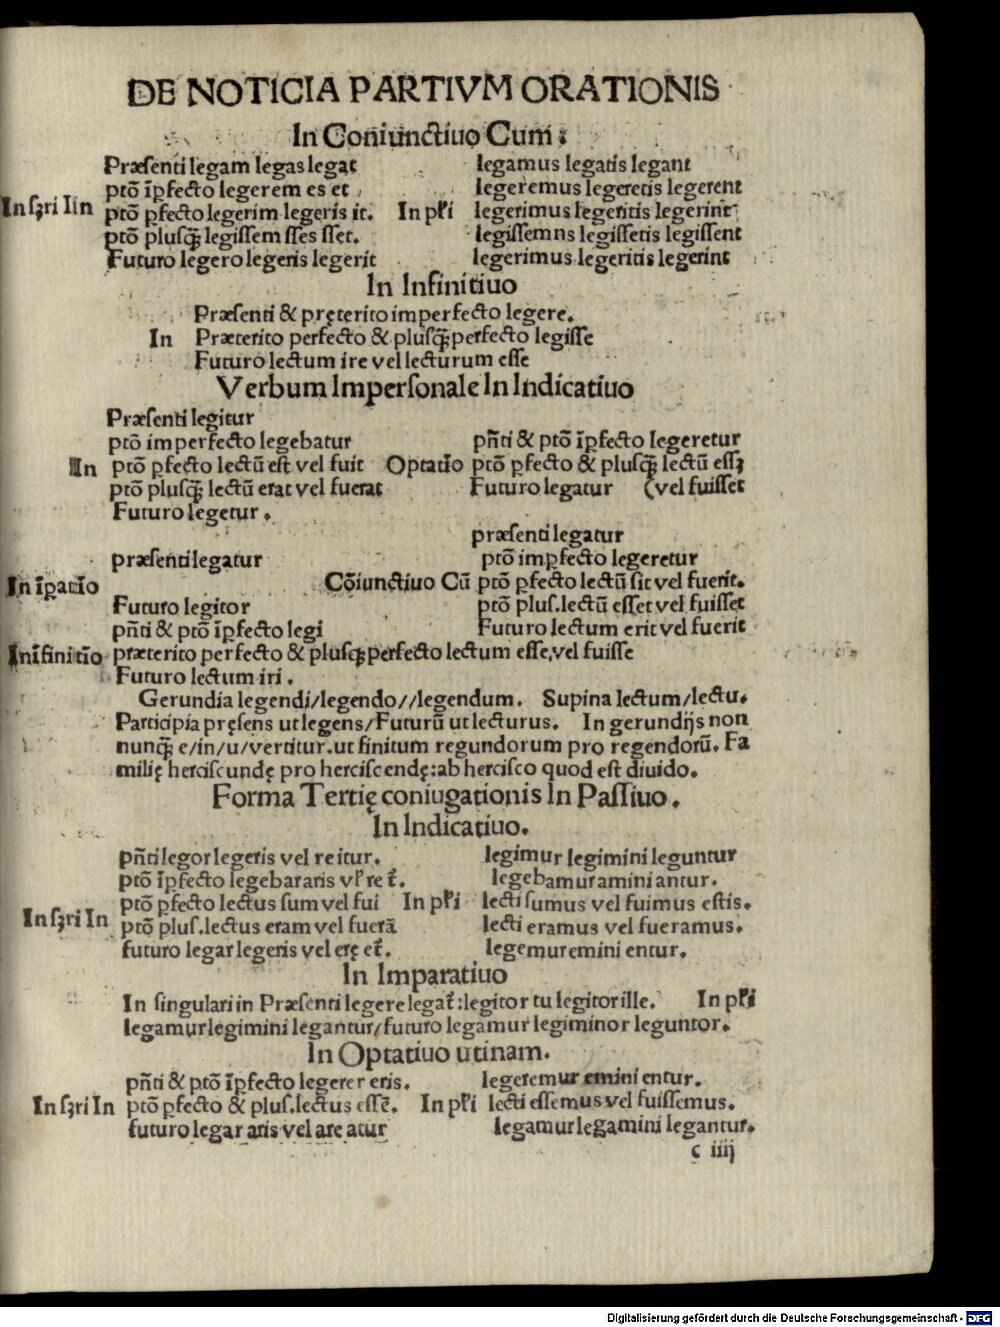 DE NOTICIA PARTIVM ORATIONIS
In Coniunctiuo Cum:
Præsenti legam legas legat legamus legatis legant
ptō īꝑfecto legerem es et legeremus legeretis legerent
In sꝫri Iin ptō ꝑfecto legerim legeris it. In pľi legerimus legeritis legerint
ptō plusꝙ̃ legissem sses sset. legissemns legissetis legissent
Futuro legero legeris legerit legerimus legeritis legerint
In Infinitiuo
Præsenti & pręterito imperfecto legere.
In Præterito perfecto & plusꝙ̃perfecto legisse
Futuro lectum ire vel lecturum esse
Verbum Impersonale In Indicatiuo
Præsenti legitur
ptō imperfecto legebatur pn̄ti & ptō īꝑfecto legeretur
In ptō ꝑfecto lectū est vel fuit Optatīo ptō ꝑfecto & plusꝙ̃ lectū essꝫ
ptō plusꝙ̃ lectū erat vel fuerat Futuro legatur (vel fuisset
Futuro legetur.
præsenti legatur
præsenti legatur ptō impfecto legeretur
In īꝑatīo Cōiunctiuo Cū ptō ꝑfecto lectū sit vel fuerit.
Futuro legitor ptō plus.lectū esset vel fuisset
pn̄ti & ptō īꝑfecto legi Futuro lectum erit vel fuerit
Inīfinitīo præterito perfecto & plusꝙ̃perfecto lectum esse,vel fuisse
Futuro lectum iri.
Gerundia legendi/legendo//legendum. Supina lectum/lectu.
Participia pręsens ut legens/Futurū ut lecturus. In gerundijs non
nunꝙ̃ e/in/u/vertitur.ut finitum regundorum pro regendorū. Fa
milię herciscundę pro herciscendę:ab hercisco quod est diuido.
Forma Tertię coniugationis In Passiuo.
In Indicatiuo.
pn̄ti legor legeris vel re itur. legimur legimini leguntur
ptō īꝑfecto legebar aris vľ re t᷑. legebamur amini antur.
ptō ꝑfecto lectus sum vel fui In pľi lecti sumus vel fuimus estis.
In sꝫri In ptō plus.lectus eram vel fuerā lecti eramus vel fueramus.
futuro legar legeris vel erę et᷑. legemur emini entur.
In Imparatiuo
In singulari in Præsenti legere legat᷑:legitor tu legitor ille. In pľi
legamur legimini legantur/futuro legamur legiminor leguntor.
In Optatiuo utinam.
pn̄ti & ptō īꝑfecto legerer eris. legeremur emini entur.
In sꝫri In ptō ꝑfecto & plus.lectus essē. In pľi lecti essemus vel fuissemus.
futuro legar aris vel are atur legamur legamini legantur.
c iiij
Digitalisierung gefördert durch die Deutsche Forschungsgemeinschaft - DFG